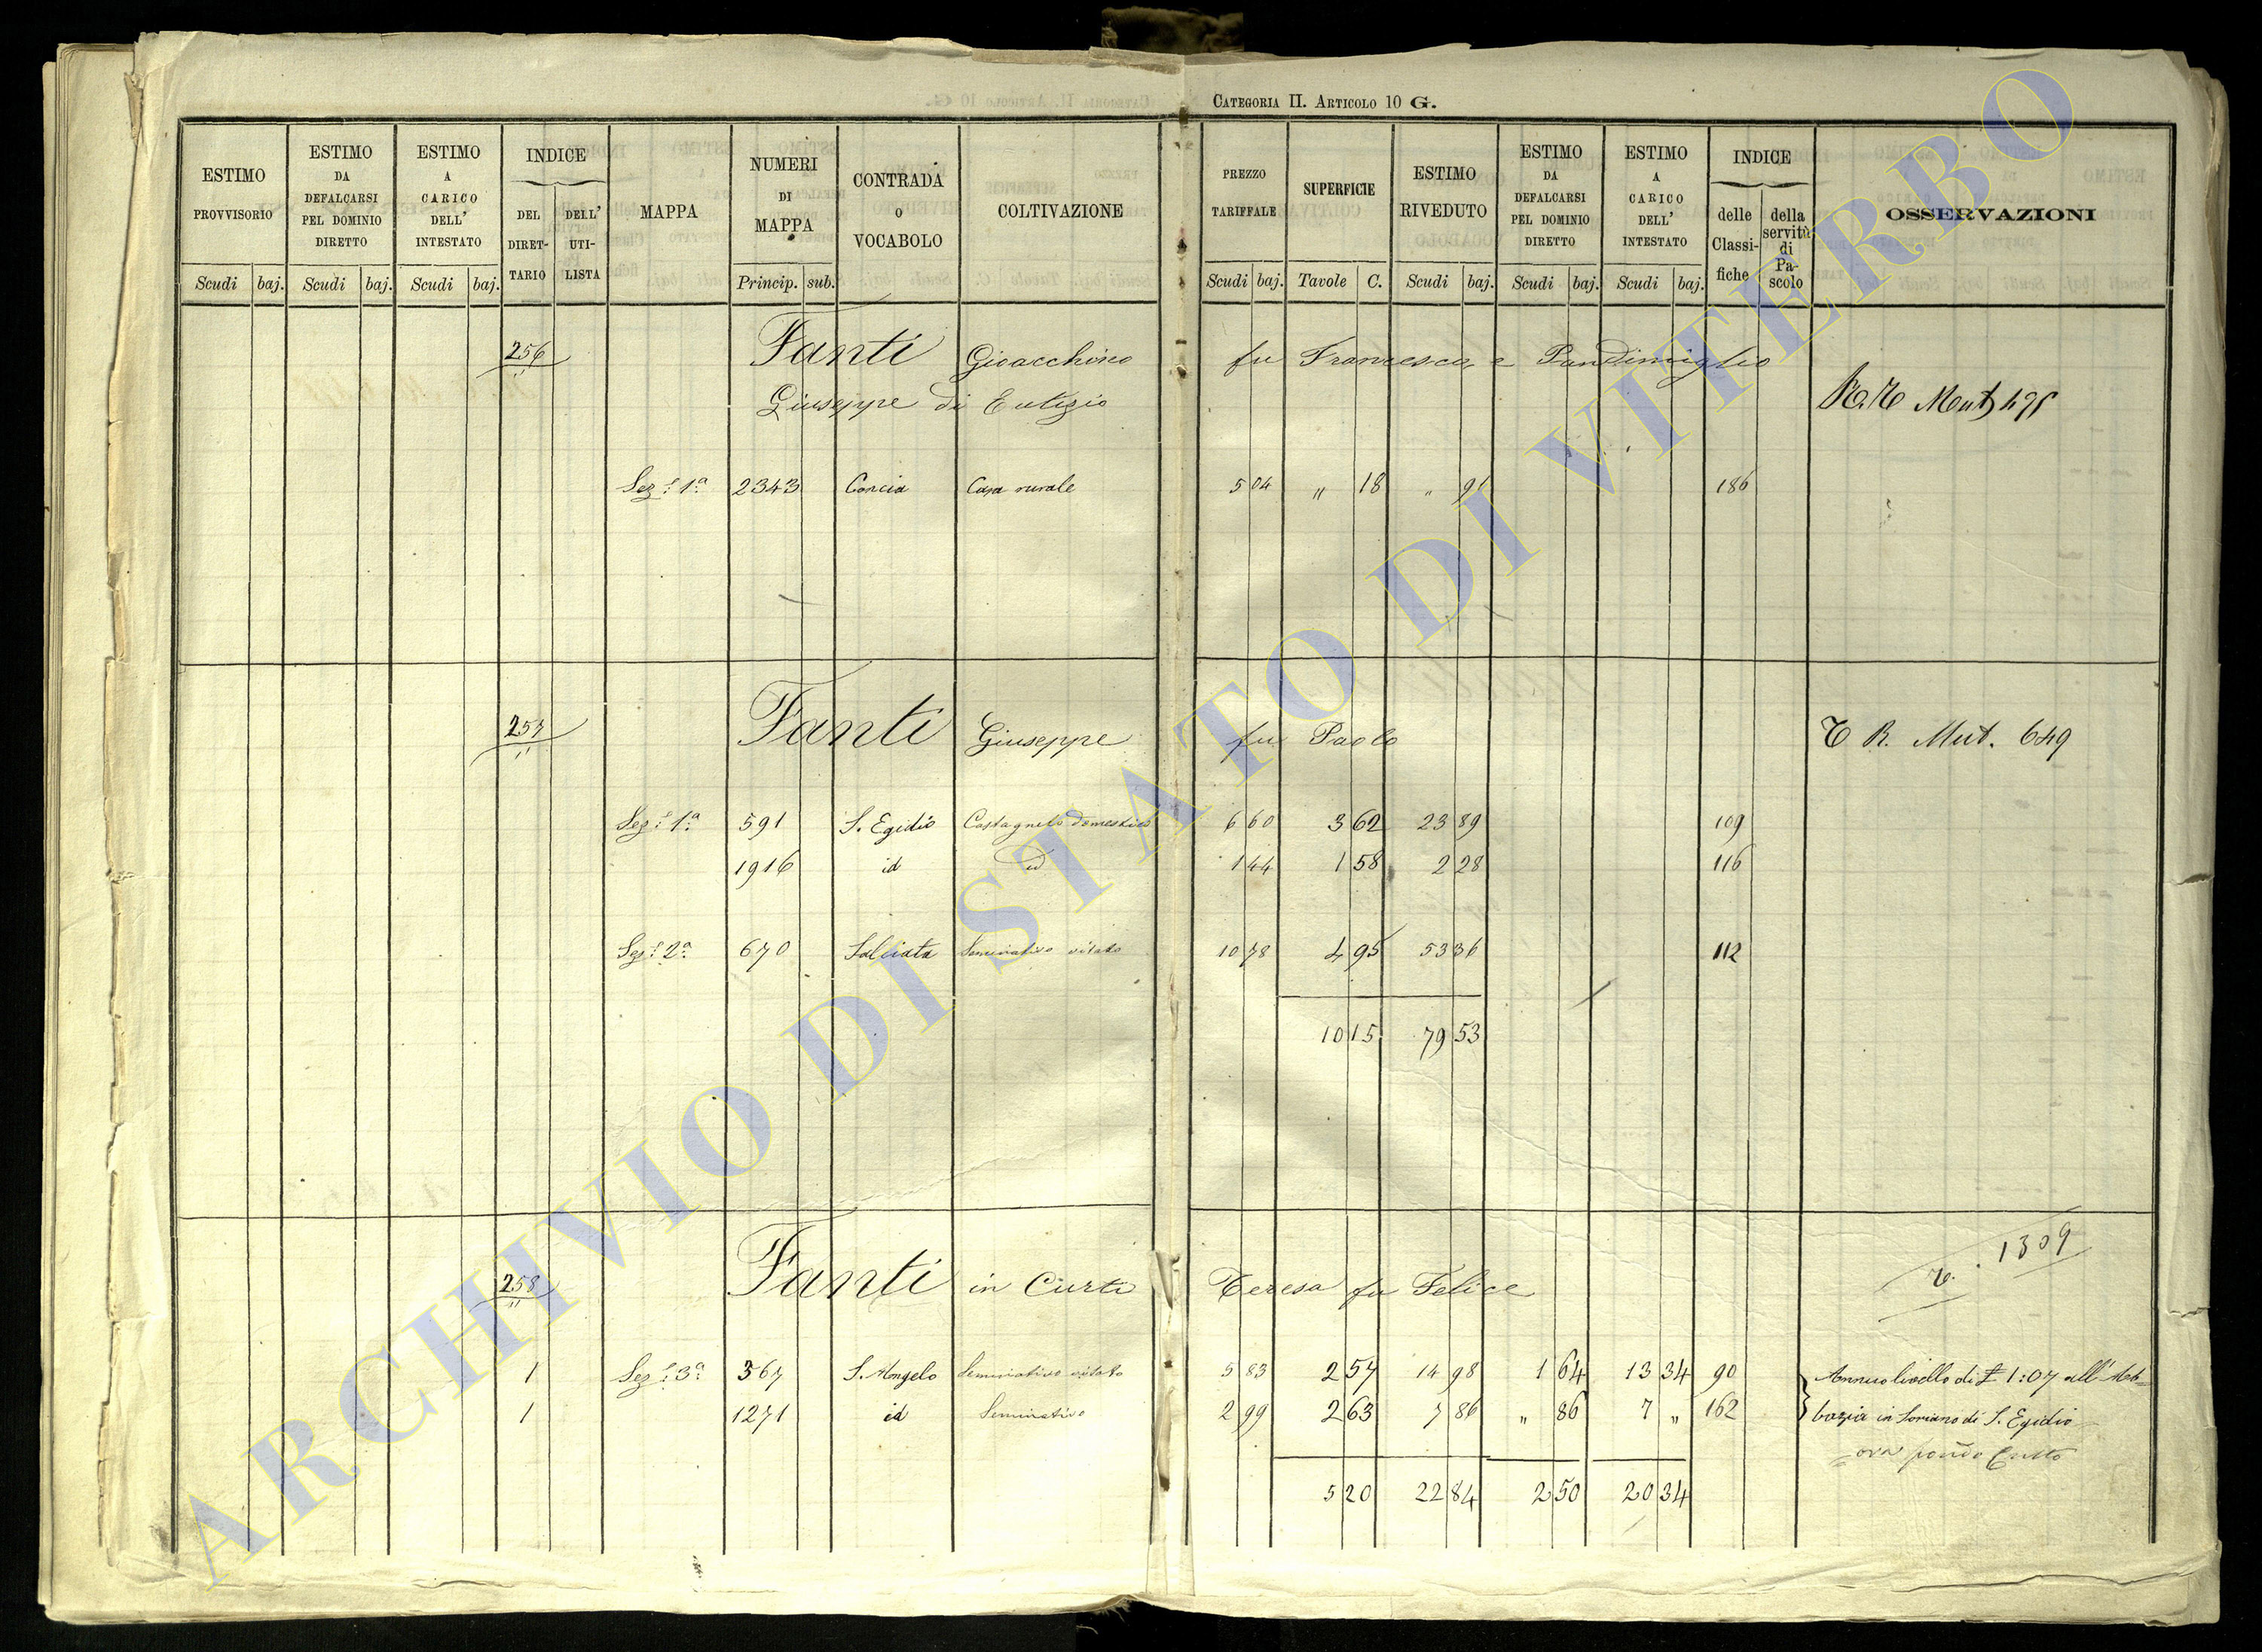 CATEGORIA II. ARTICOLO 10 G.
ESTIMO PROVVISORIO
ESTIMO DA DEFALCARSI PEL DOMINIO DIRETTO
ESTIMO A CARICO DELL' INTESTATO
INDICE
DEL DIRETTARIO
DELL' UTILISTA
MAPPA
NUMERI DI MAPPA
CONTRADA O VOCABOLO
COLTIVAZIONE
PREZZO TARIFFALE
SUPERFICIE
ESTIMO RIVEDUTO
ESTIMO DA DEFALCARSI PEL DOMINIO DIRETTO
ESTIMO A CARICO DELL' INTESTATO
INDICE
delle Classifiche
della servitù di Pascolo
OSSERVAZIONI
Scudi baj. Scudi baj. Scudi baj. Princip. sub. Scudi baj. Tavole C. Scudi baj. Scudi baj. Scudi baj.
256 Fanti Gioacchino fu Francesco, e Pandimiglio
Giuseppe di Eutizio
Mut 495
Sez.e 1a 2343 Concia Casa rurale 5 04 " 18 " 91 186
257 Fanti Giuseppe fu Paolo T R. Mut. 649
Sez.e 1a 591 S. Egidio Castagneto domestico 6 60 3 62 23 89 109
1916 id id 1 44 1 58 2 28 116
Sez.e 2a 670 Salciata Seminativo vitato 10 78 4 95 53 36 112
10 15 79 53
1309
258 Fanti in Curti Teresa fu Felice
1 Sez.e 3a 367 S. Angelo Seminativo vitato 5 83 2 57 14 98 1 64 13 34 90 Annuo livello di £ 1:07 all'Ab=
1 1271 id Seminativo 2 99 2 63 7 86 " 86 7 " 162 bazia in Soriano di S. Egidio
ora fondo Culto
5 20 22 84 2 50 20 34
ARCHIVIO DI STATO DI VITERBO